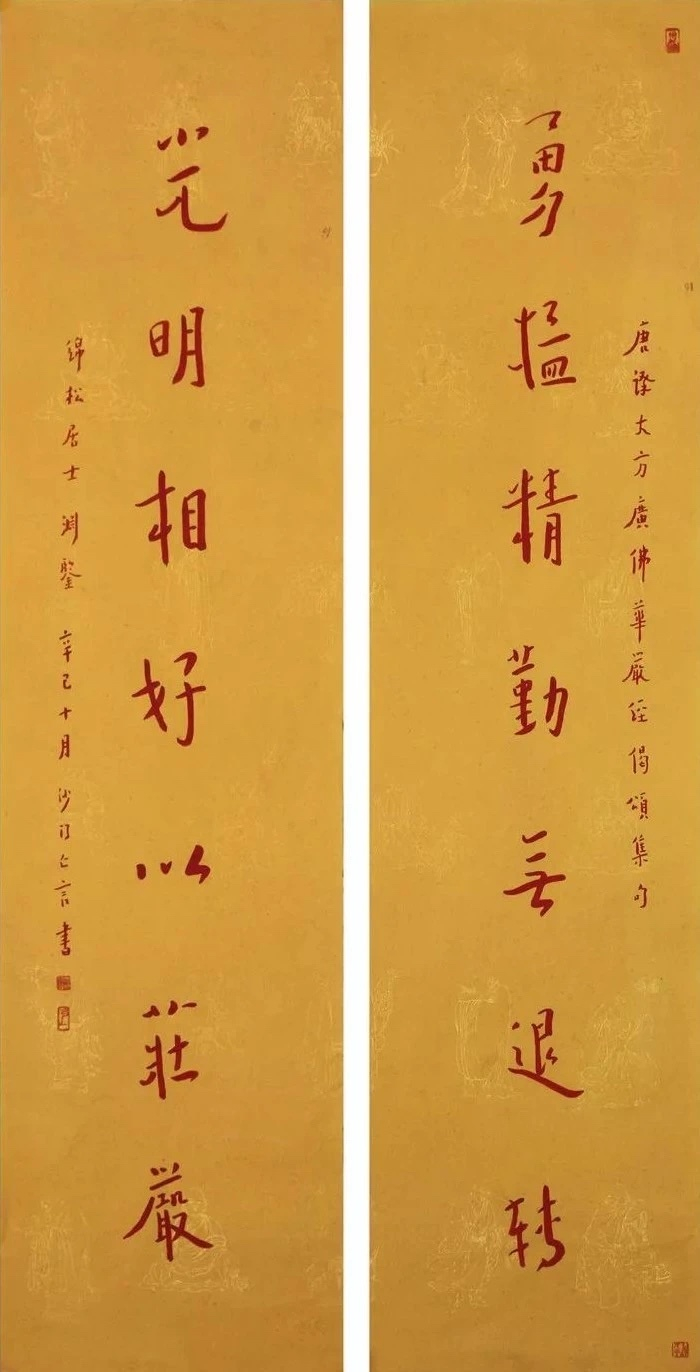 唐譯大方廣佛華嚴經偈頌集句
勇猛精勤無退轉
光明相好以莊嚴
錦松居士渊鑒 辛巳十月 沙門亡言書